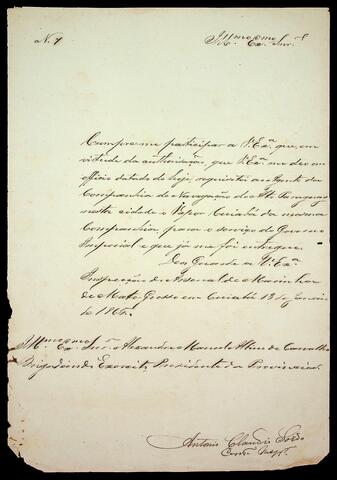 N. 7
Ill.mo e Ex.mo Snr.
Cumpre-me participar a V. Ex.ª que, em
virtude da authorisação, que V. Ex.ª me deo em
officio datado de hoje, requisitei ao Agente da
Companhia de Navegação do Alto Paraguay
nesta cidade o Vapor Cuiabá da mesma
Companhia, para o serviço do Governo
Imperial e que já me foi entregue.
Deos Guarde a V. Ex.ª
Inspecção do Arsenal de Marinha
de Mato Grosso em Cuiabá 13 de Janeiro
de 1865.
Ill.mo e Ex.mo Snr. Alexandre Manoel Albino de Carvalho
Brigadeiro do Exercito, Presidente da Provincia.
Antonio Claudio Soido